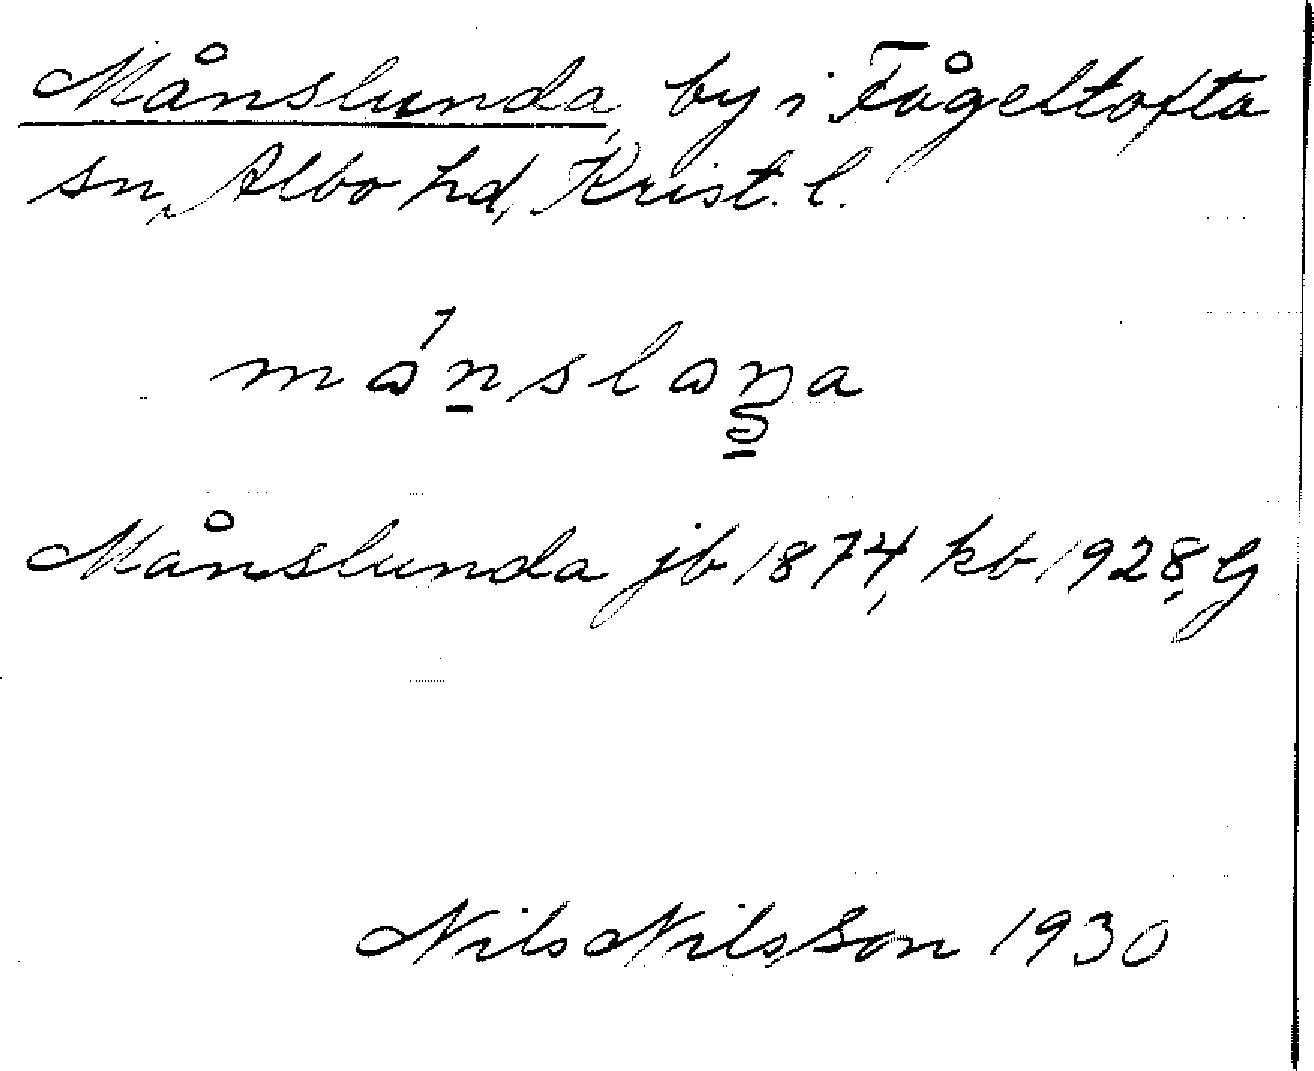 Månslunda, by i Fågeltofta
sn, Albo hd, Krist. l.
Månslunda jb 1874, kb 1928, G
Nils Nilsson 1930